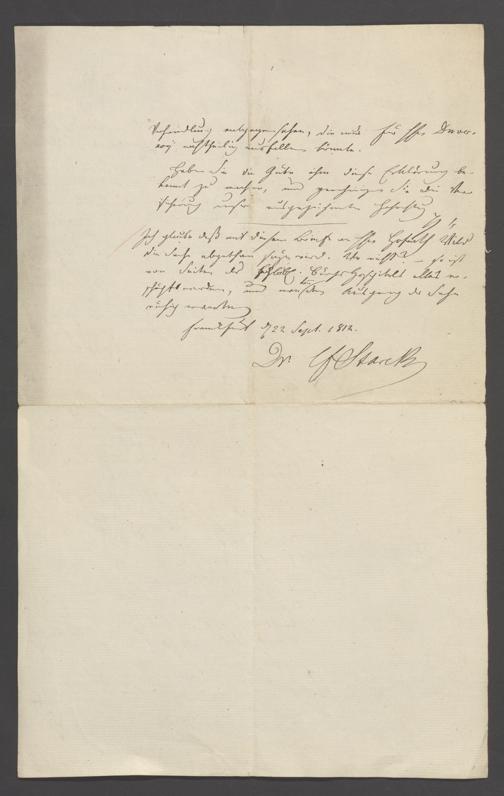 Behandlung entgegensehen, die nur für Hrn
nachtheilig ausfallen könnte.
Haben Sie die Güte ihm diese Erklärung be-
kannt zu machen, und genehmigen Sie die Ver-
sicherung meiner ausgezeichneten Hochachtung
Ich glaube daß mit diesem Brief an Hrn Hofrath
die Sache abgethan seyn wird. Wo nicht? – so ist
von Seiten des Hospitals alles er-
schöpft worden, und Ausgang der Sache
ruhig erwarten
Frankfurt d 22 Sept. 1812.
Dr Starck